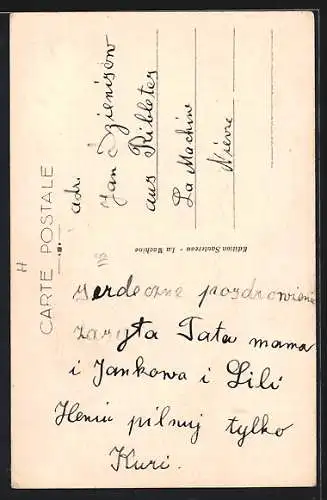 CARTE POSTALE
adr.
Jan Dzienisów
aux Riblets
La Machine
Nièvre
Edition Sautereau - La Machine
H
serdeczne pozdrowienie
zasyła Tata mama
i Jankowa i Lili
Heniu pilnuj tylko
Kuri.